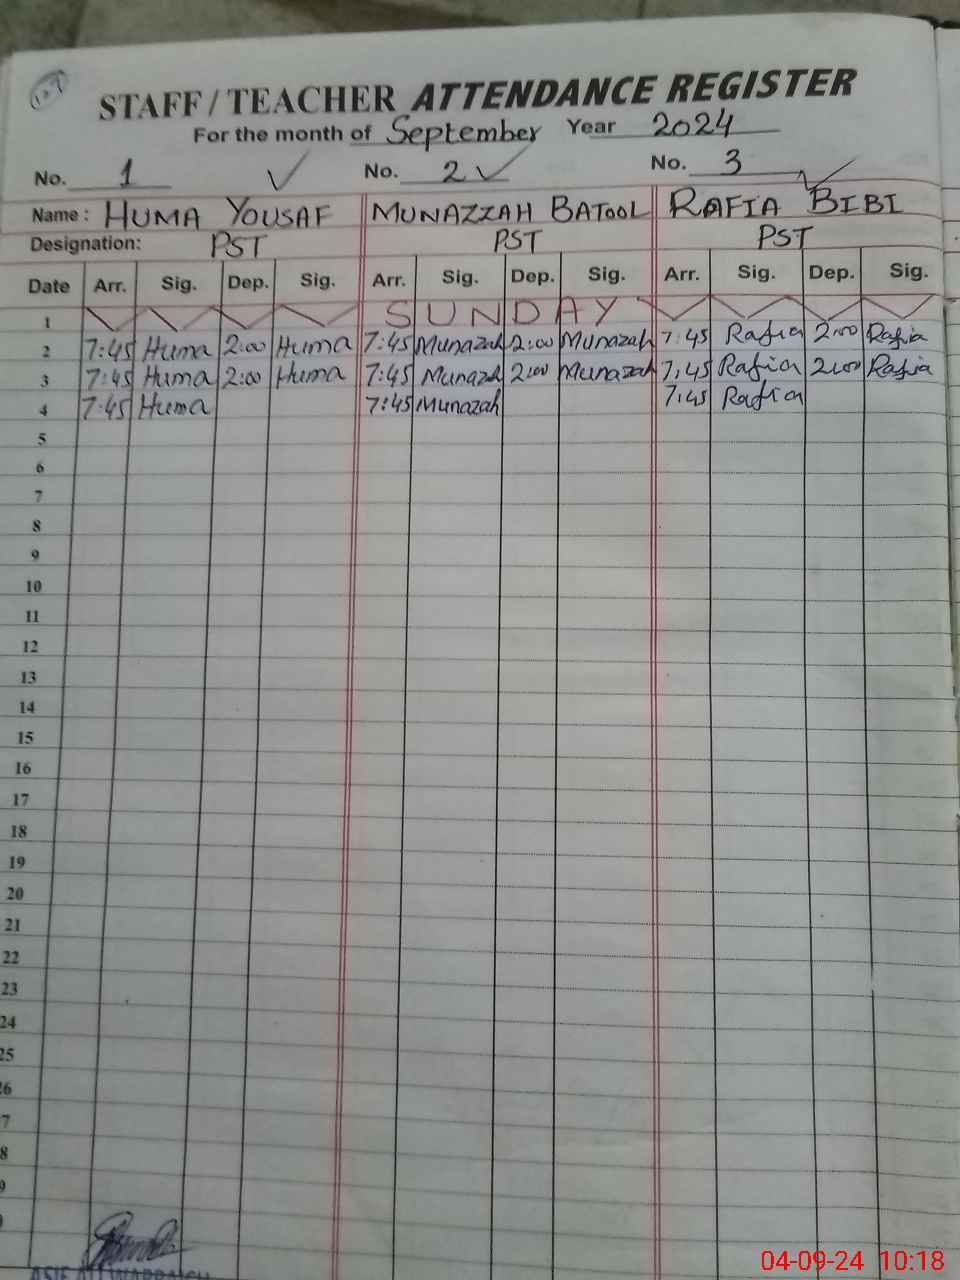 STAFF/TEACHER ATTENDANCE REGISTER
For the month of September Year 2024
No. 1 No. 2 No. 3
Name: HUMA YOUSAF MUNAZZAH BATOOL RAFIA BIBI
Designation: PST PST PST
Date Arr. Sig. Dep. Sig. Arr. Sig. Dep. Sig. Arr. Sig. Dep. Sig.
1 SUNDAY
2 7:45 Huma 2:00 Huma 7:45 Munazah 2:00 Munazah 7:45 Rafia 2:00 Rafia
3 7:45 Huma 2:00 Huma 7:45 Munazah 2:00 Munazah 7:45 Rafia 2:00 Rafia
4 7:45 Huma 7:45 Munazah 7:45 Rafia
5
6
7
8
9
10
11
12
13
14
15
16
17
18
19
20
21
22
23
24
25
6
7
8
9
04-09-24 10:18